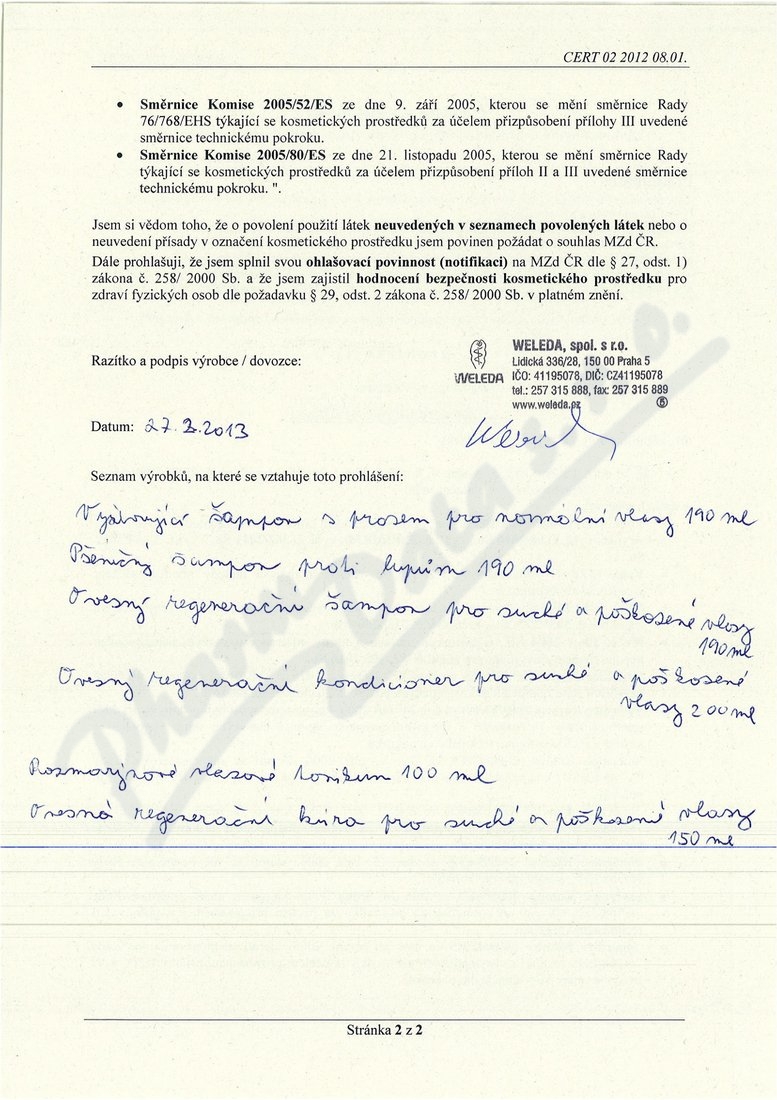 CERT 02 2012 08.01.
• Směrnice Komise 2005/52/ES ze dne 9. září 2005, kterou se mění směrnice Rady
76/768/EHS týkající se kosmetických prostředků za účelem přizpůsobení přílohy III uvedené
směrnice technickému pokroku.
• Směrnice Komise 2005/80/ES ze dne 21. listopadu 2005, kterou se mění směrnice Rady
týkající se kosmetických prostředků za účelem přizpůsobení příloh II a III uvedené směrnice
technickému pokroku. ".
Jsem si vědom toho, že o povolení použití látek neuvedených v seznamech povolených látek nebo o
neuvedení přísady v označení kosmetického prostředku jsem povinen požádat o souhlas MZd ČR.
Dále prohlašuji, že jsem splnil svou ohlašovací povinnost (notifikaci) na MZd ČR dle § 27, odst. 1)
zákona č. 258/ 2000 Sb. a že jsem zajistil hodnocení bezpečnosti kosmetického prostředku pro
zdraví fyzických osob dle požadavku § 29, odst. 2 zákona č. 258/ 2000 Sb. v platném znění.
Razítko a podpis výrobce / dovozce:
WELEDA
WELEDA, spol. s r.o.
Lidická 336/28, 150 00 Praha 5
IČO: 41195078, DIČ: CZ41195078
tel.: 257 315 888, fax: 257 315 889
www.weleda.cz 5
Datum: 27.2.2013
Seznam výrobků, na které se vztahuje toto prohlášení:
Vyživující šampon s prosem pro normální vlasy 190 ml
Pšeničný šampon proti lupům 190 ml
Ovesný regenerační šampon pro suché a poškozené vlasy
190 ml
Ovesný regenerační kondicioner pro suché a poškozené
vlasy 200 ml
Rozmarýnové vlasové tonikum 100 ml
Ovesná regenerační kúra pro suché a poškozené vlasy
150 ml
Stránka 2 z 2